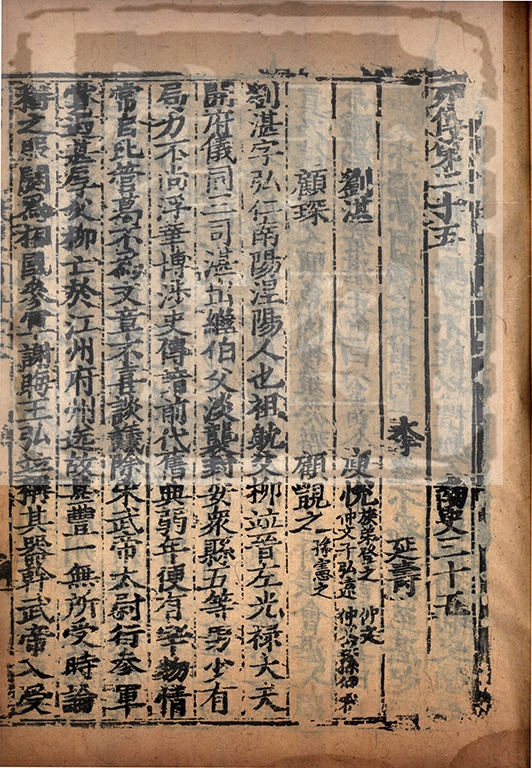 列傳第二十五　南史三十五
李　延壽
劉湛　庾悅　族弟登之　仲文　仲文子弘遠　仲文族孫仲容
顧琛　顧覬之　孫憲之
劉湛字弘仁南陽涅陽人也祖耽父柳並晉左光祿大夫
開府儀同三司湛出繼伯父淡襲封安衆縣五等男少有
局力不尚浮華博涉史傳諳前代舊典弱年便有宰物情
常自比管葛不爲文章不喜談議除宋武帝太尉行參軍
賞遇甚厚父柳亡於江州府州送故甚豐一無所受時論
稱之服闋爲相國參軍謝晦王弘並稱其器幹武帝入受